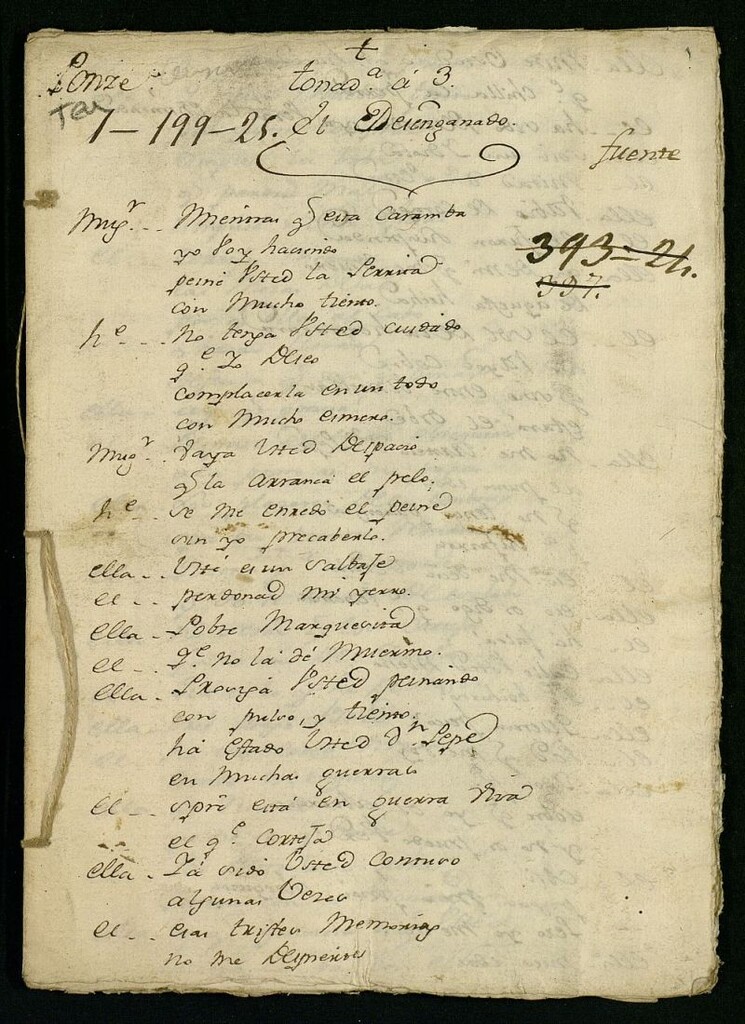 +
Ponze
tonad.ª á 3.
Tea
1-199-25. El Desengañado.
fuente
Mug.r .. Mientras q̃ esta Caramba
yo Voy haciendo
393-24.
peine Usted la Perrita
337.
con Mucho tiento.
h.e ... No tenga Usted cuidado
q.e Yo Deseo
complacerla en un todo
con Mucho esmero.
Mug.r .. Vaya Usted Despacio
q̃ la arranca el pelo.
h.e .. se me enredo el peine
sin yo precaberlo.
ella .. Usté es un Salbaje
el .. perdonad mi yerro.
ella .. Pobre Marquesita
el .. q.e no la dé Muermo.
ella .. Prosiga Usted peinando
con pulso, y tiento.
há Estado Usted d.n Pepe
en Muchas guerras
el .. spre está en guerra viva
el q.e Corteja
ella .. Ya sido Usted Contuso
algunas Vezes
el .. esas tristes Memorias
no me Despierte